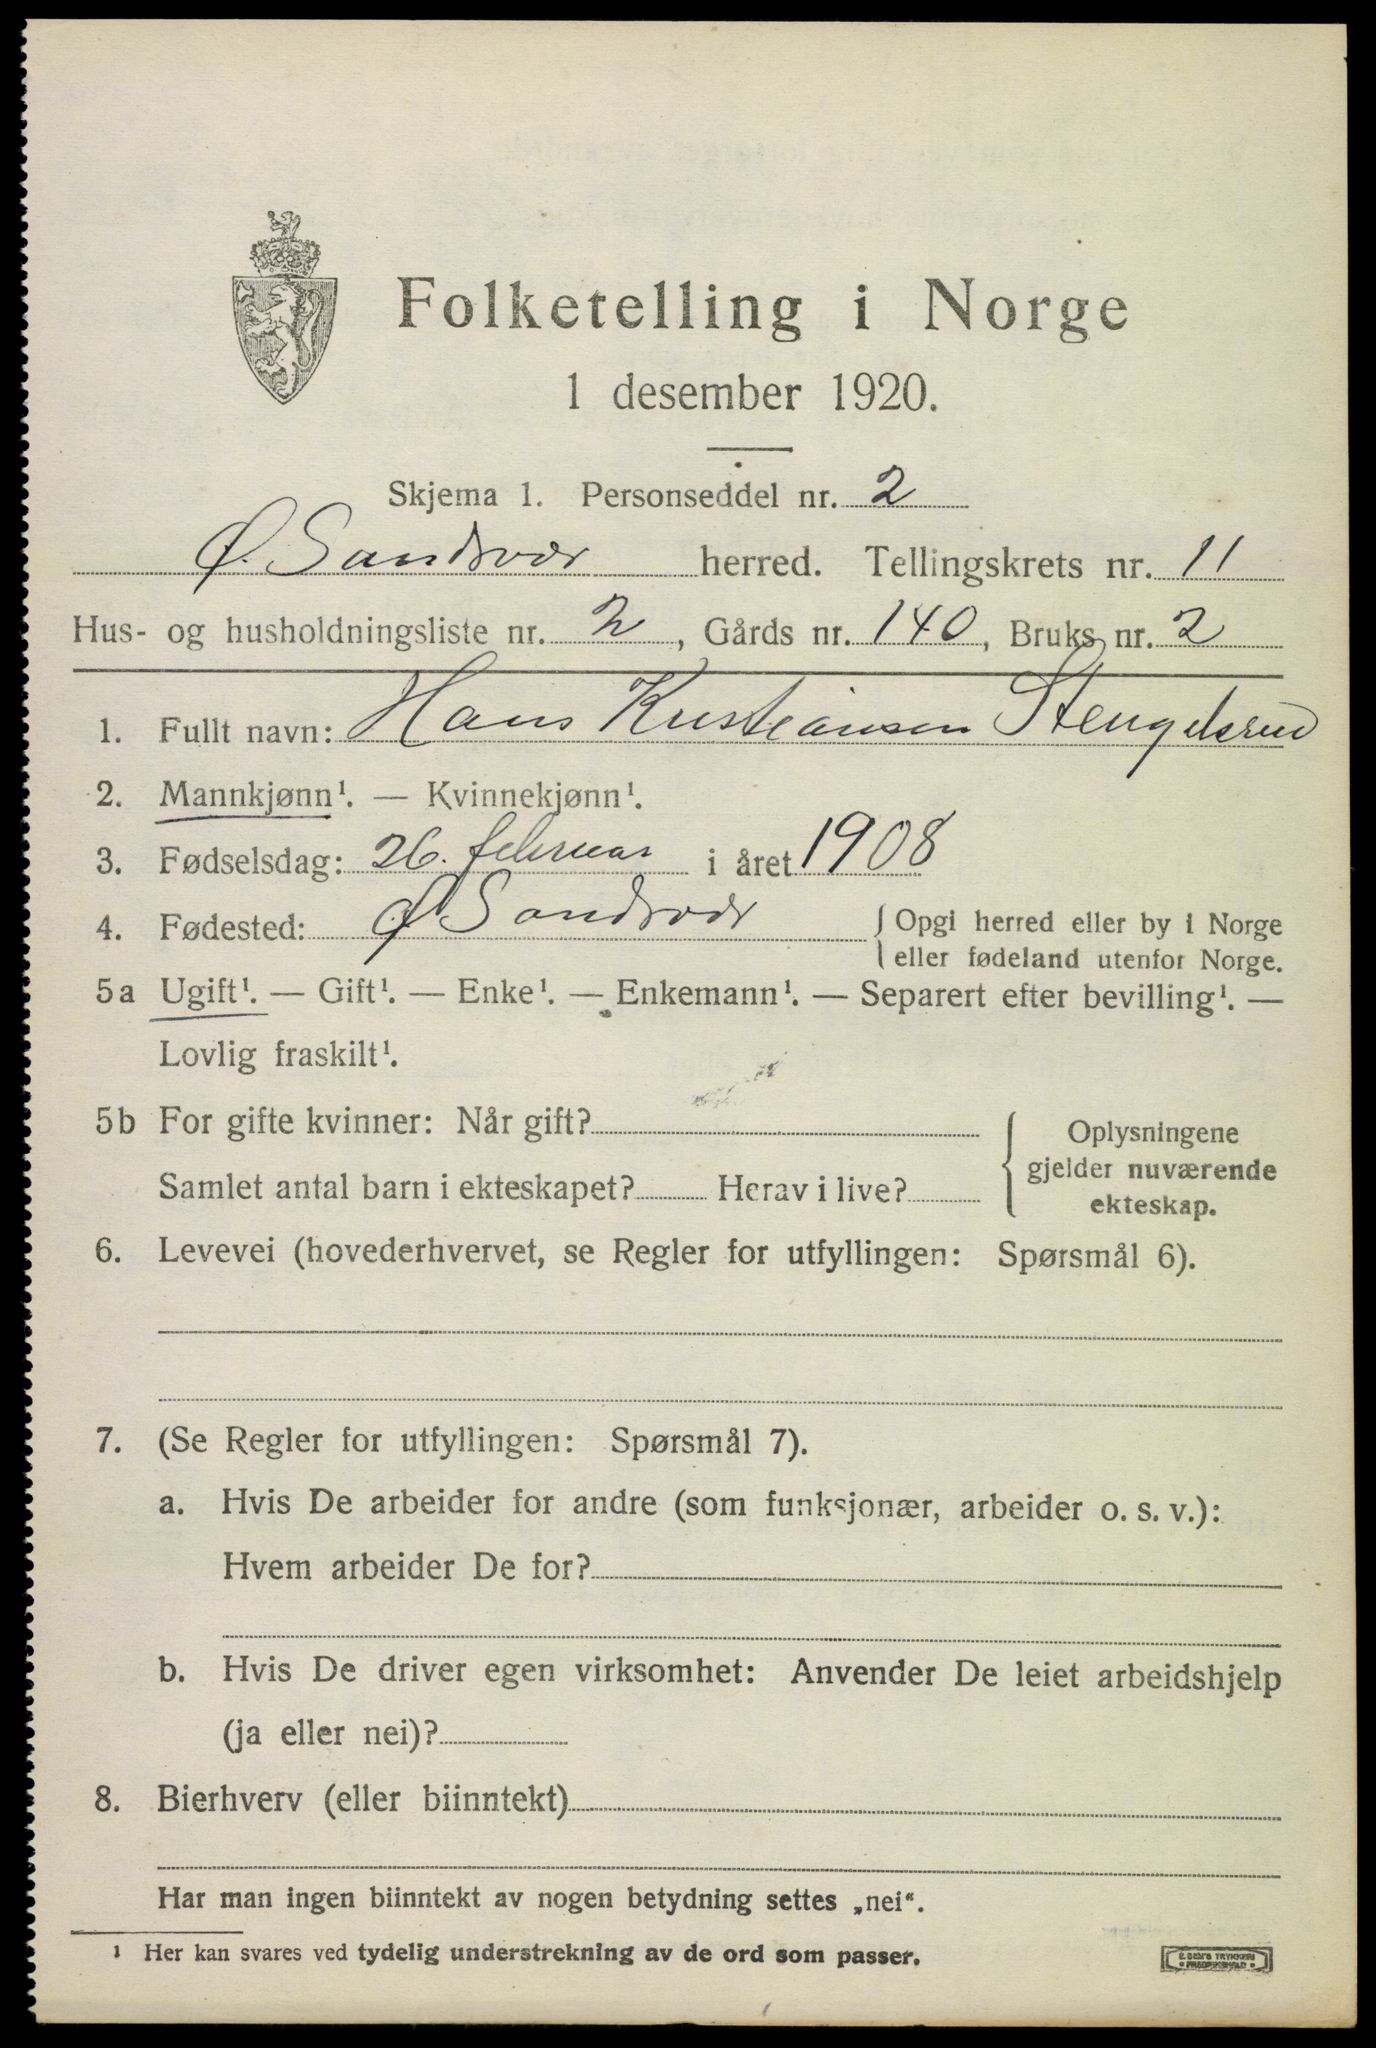 Folketelling i Norge
1 desember 1920.
Skjema 1. Personseddel nr. 2
Ø. Sandsvær herred. Tellingskrets nr. 11
Hus- og husholdningsliste nr. 2, Gårds nr. 140, Bruks nr. 2
1. Fullt navn: Hans Kristiansen Stengelsrud
2. Mannkjønn¹. — Kvinnekjønn¹.
3. Fødselsdag: 26. februar i året 1908
4. Fødested: Ø Sandsvær { Opgi herred eller by i Norge
eller fødeland utenfor Norge.
5a Ugift¹. — Gift¹. — Enke¹. — Enkemann¹. — Separert efter bevilling¹. —
Lovlig fraskilt¹.
5b For gifte kvinner: Når gift?
Samlet antal barn i ekteskapet? Herav i live?
Oplysningene
gjelder nuværende
ekteskap.
6. Levevei (hovederhvervet, se Regler for utfyllingen: Spørsmål 6).
7. (Se Regler for utfyllingen: Spørsmål 7).
a. Hvis De arbeider for andre (som funksjonær, arbeider o. s. v.):
Hvem arbeider De for?
b. Hvis De driver egen virksomhet: Anvender De leiet arbeidshjelp
(ja eller nei)?
8. Bierhverv (eller biinntekt)
Har man ingen biinntekt av nogen betydning settes „nei“.
¹ Her kan svares ved tydelig understrekning av de ord som passer.